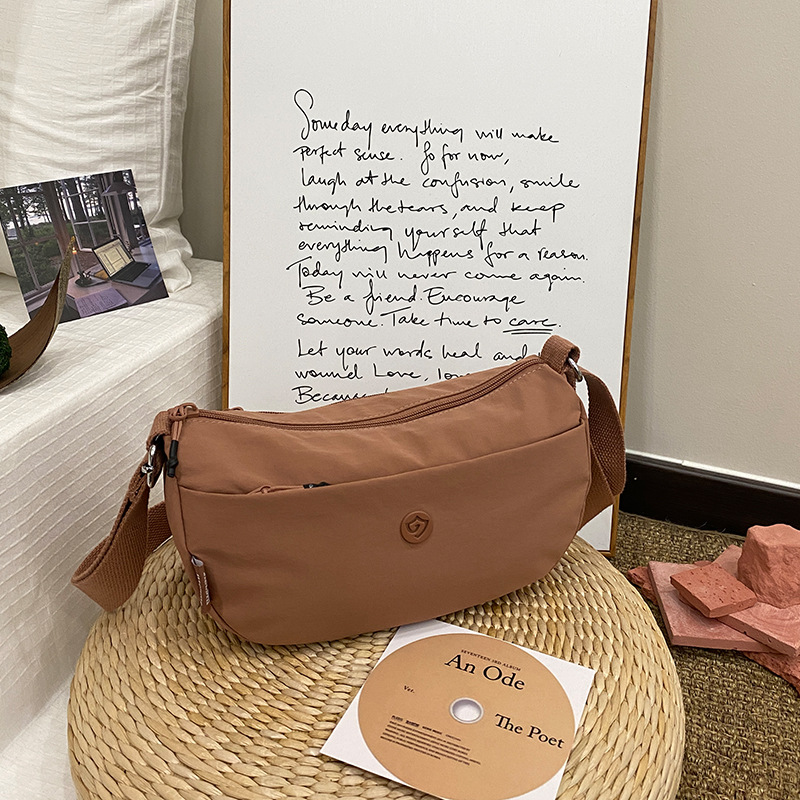 Someday everything will make
perfect sense. So for now,
laugh at the confusion, smile
through the tears, and keep
reminding yourself that
everything happens for a reason.
Today will never come again.
Be a friend. Encourage
someone. Take time to care.
Let your words heal and
wound Love,
Because
SEVENTEEN 3RD ALBUM
An Ode
Ver.
The Poet